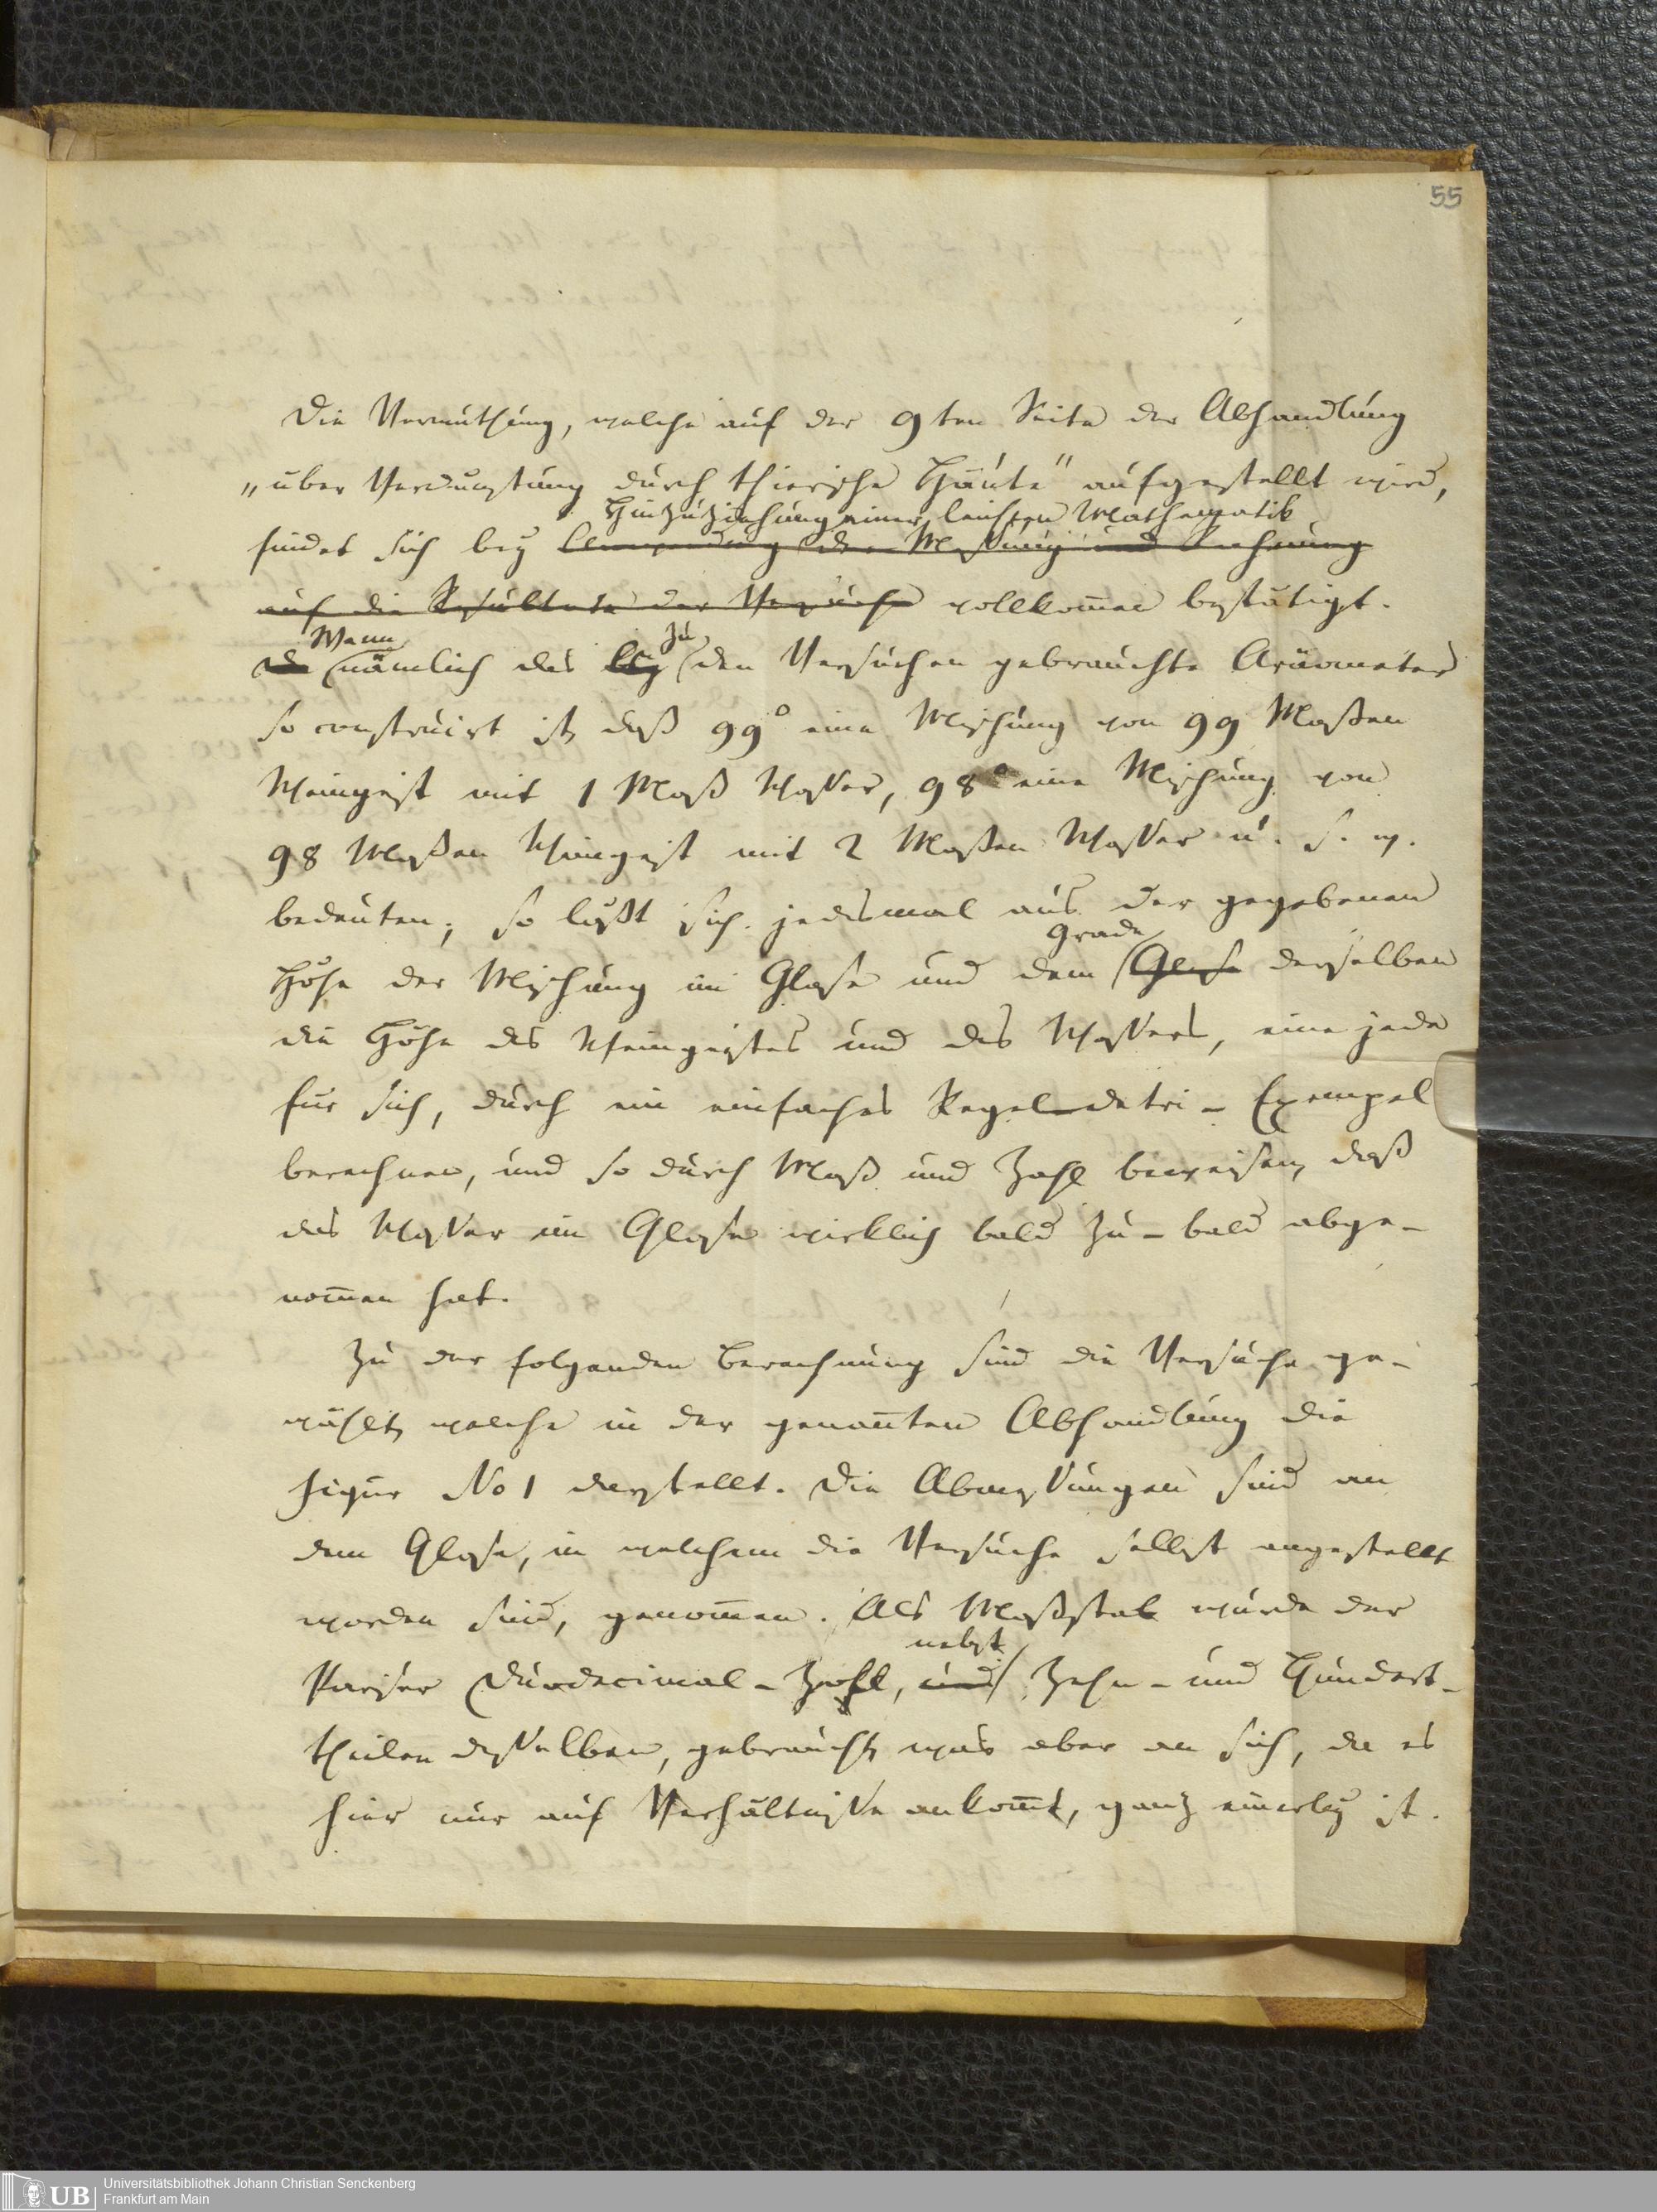 55
Die Vermuthung, welche auf der 9ten Seite der Abhandlung
„über Verdunstung durch thierische Häute" aufgestellt wird,
Hinzuziehung einer leichten Mathematik
findet sich bey Anwendung der Messung und Rechnung
auf die Resultate der Versuche vollkom̅en bestätigt.
Wenn zu
Da nämlich das bey den Versuchen gebrauchte Aräometer
so construirt ist, daß 99° eine Mischung von 99 Maßen
Weingeist mit 1 Maß Wasser, 98° eine Mischung von
98 Maßen Weingeist mit 2 Maßen Wasser u. s. w.
bedeuten; so läßt sich jedesmal aus der gegebenen
Grade
Höhe der Mischung im Glase und dem Glase derselben
die Höhe des Weingeistes und des Wassers, eine jede
für sich, durch ein einfaches Regel-detri-Exempel
berechnen, und so durch Maß und Zahl beweisen, daß
das Wasser im Glase wirklich bald zu- bald abge-
nom̅en hat.
Zu der folgenden Berechnung sind die Versuche ge-
wählt, welche in der genan̅ten Abhandlung die
Figur No 1 darstellt. Die Abmessungen sind an
dem Glase, in welchem die Versuche selbst angestellt
worden sind, genom̅en. Als Maßstab wurde der
nebst
Pariser Duodecimal-Zoll, und Zehn- und Hundert-
theilen desselben, gebraucht, was aber an sich, da es
hier nur auf Verhältnisse ankom̅t, ganz einerley ist.
UB
Universitätsbibliothek Johann Christian Senckenberg
Frankfurt am Main